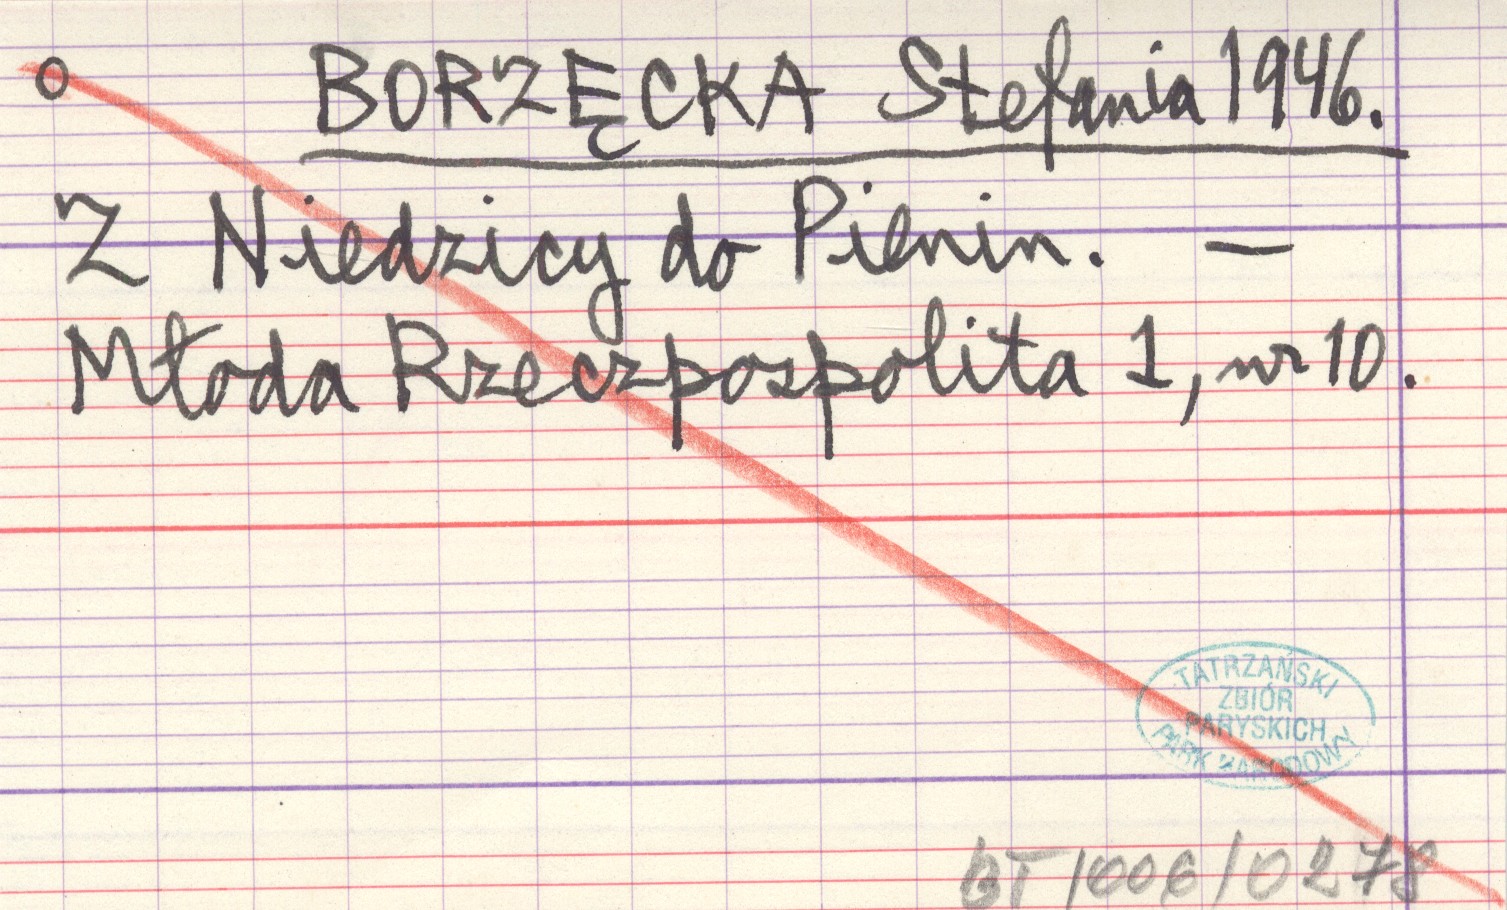 o BORZĘCKA Stefania 1946.
Z Niedzicy do Pienin. —
Młoda Rzeczpospolita 1, nr 10.
TATRZAŃSKI
ZBIÓR
PARYSKICH
PARK NARODOWY
BT/006/0278